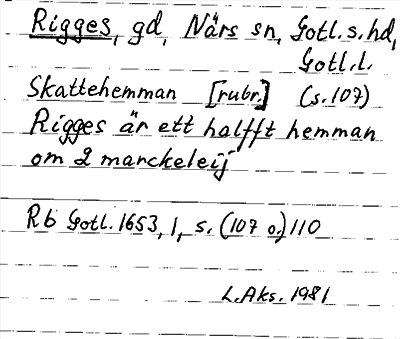 Rigges, gd, Närs sn, Gotl. s. hd,
Gotl. l.
Skattehemman [rubr.] (s. 107)
Rigges är ett halfft hemman
om 2 marckeleij
Rb Gotl. 1653, 1, s. (107 o.) 110
L. Aks. 1981